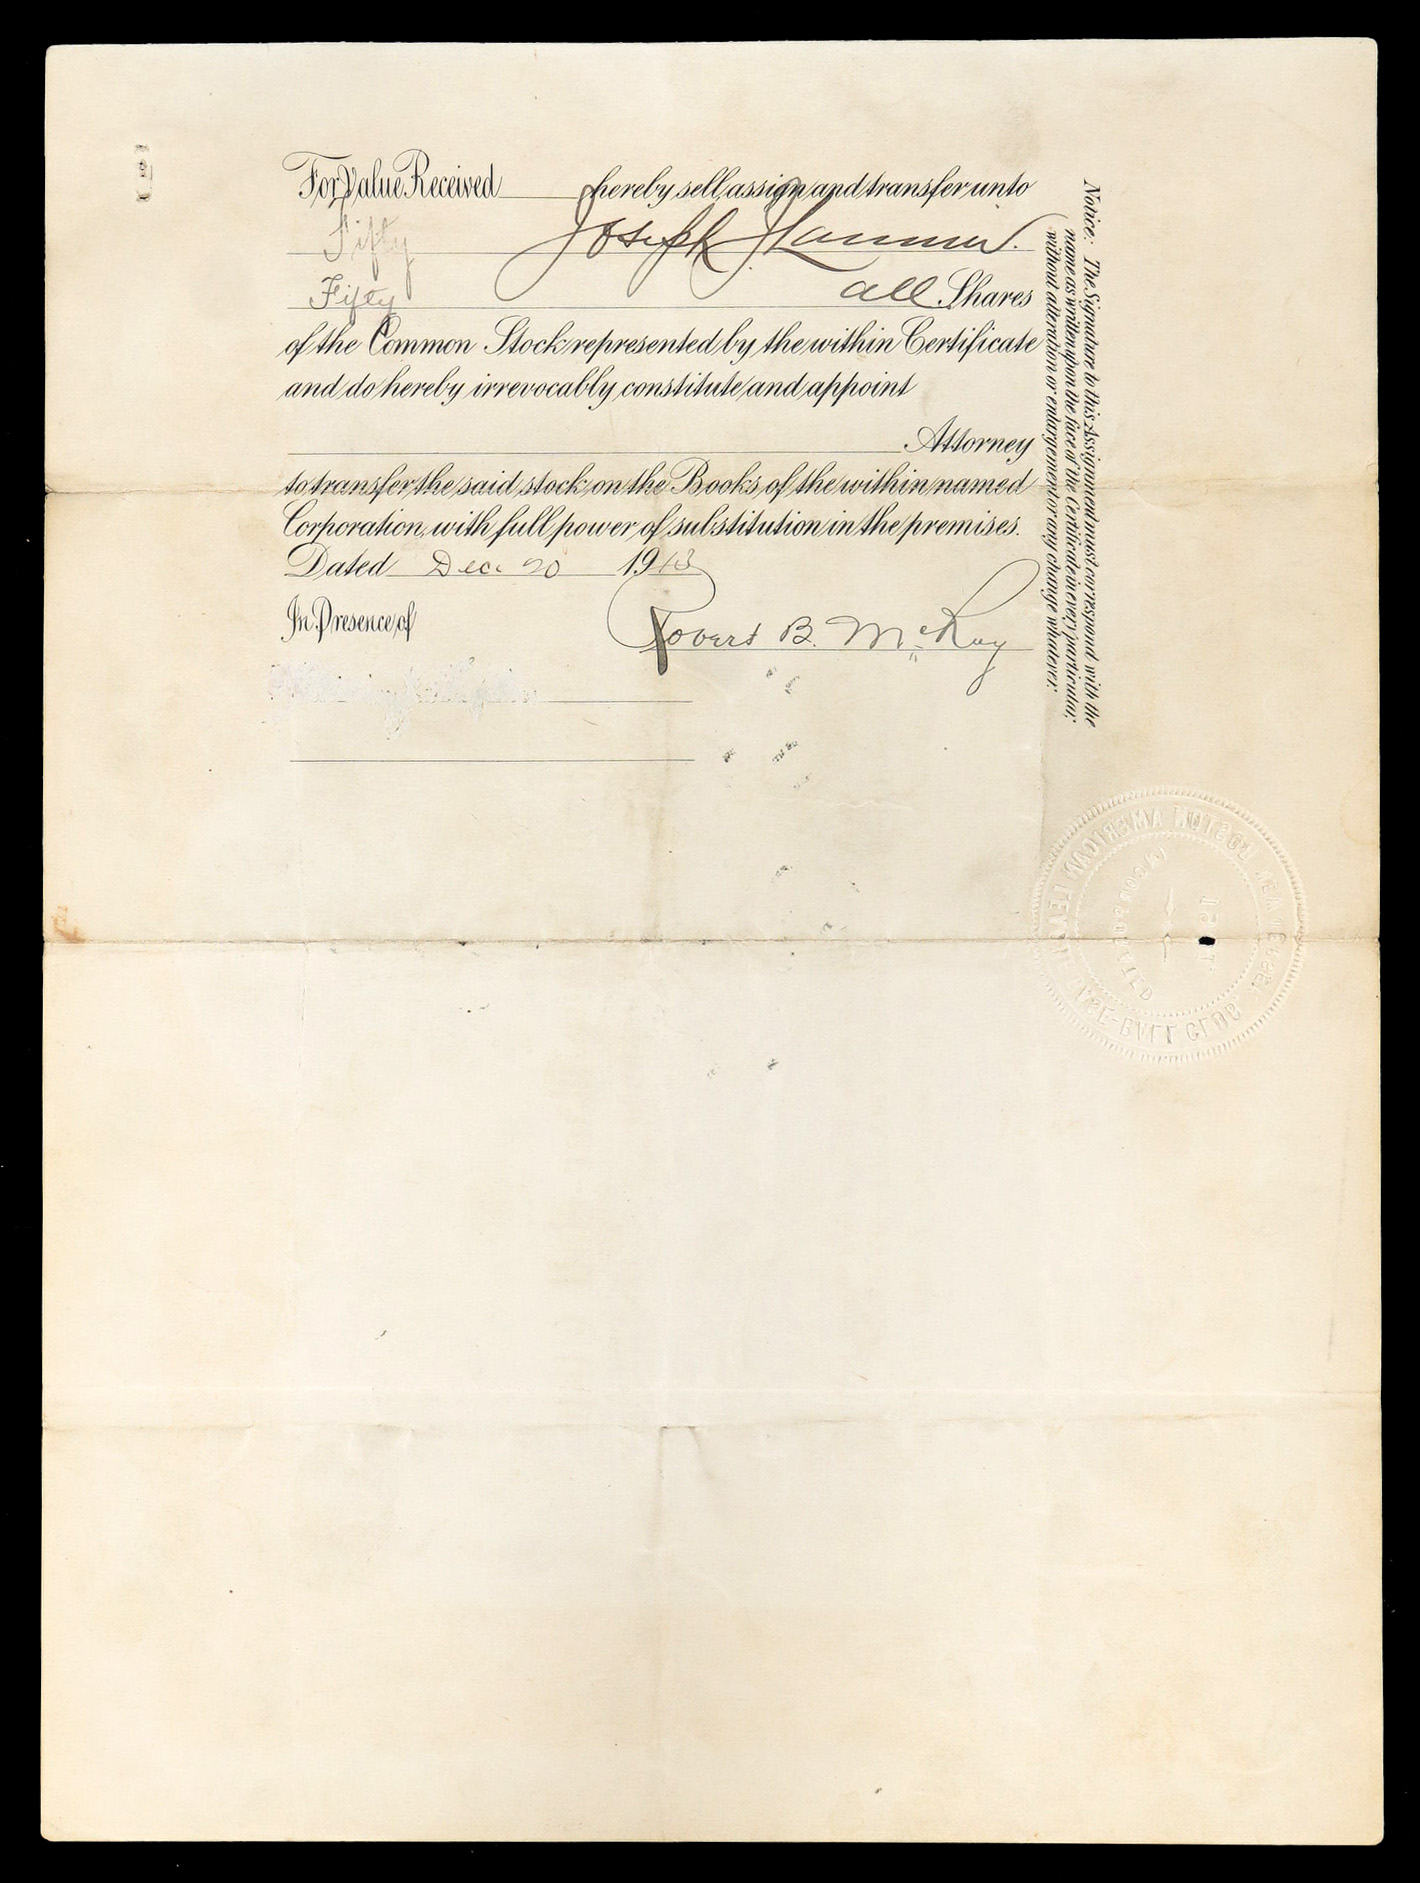 For Value Received hereby sell, assign and transfer unto
Fifty Joseph Lannin.
Fifty all Shares
of the Common Stock represented by the within Certificate
and do hereby irrevocably constitute and appoint
Attorney
to transfer the said stock on the Books of the within named
Corporation, with full power of substitution in the premises.
Dated Dec. 20 1913
In Presence of
Robert B. McRoy
Notice: The Signature to this Assignment must correspond with the
name as written upon the face of the Certificate in every particular,
without alteration or enlargement or any change whatever.
BOSTON AMERICAN LEAGUE BASE-BALL CLUB
INCORPORATED